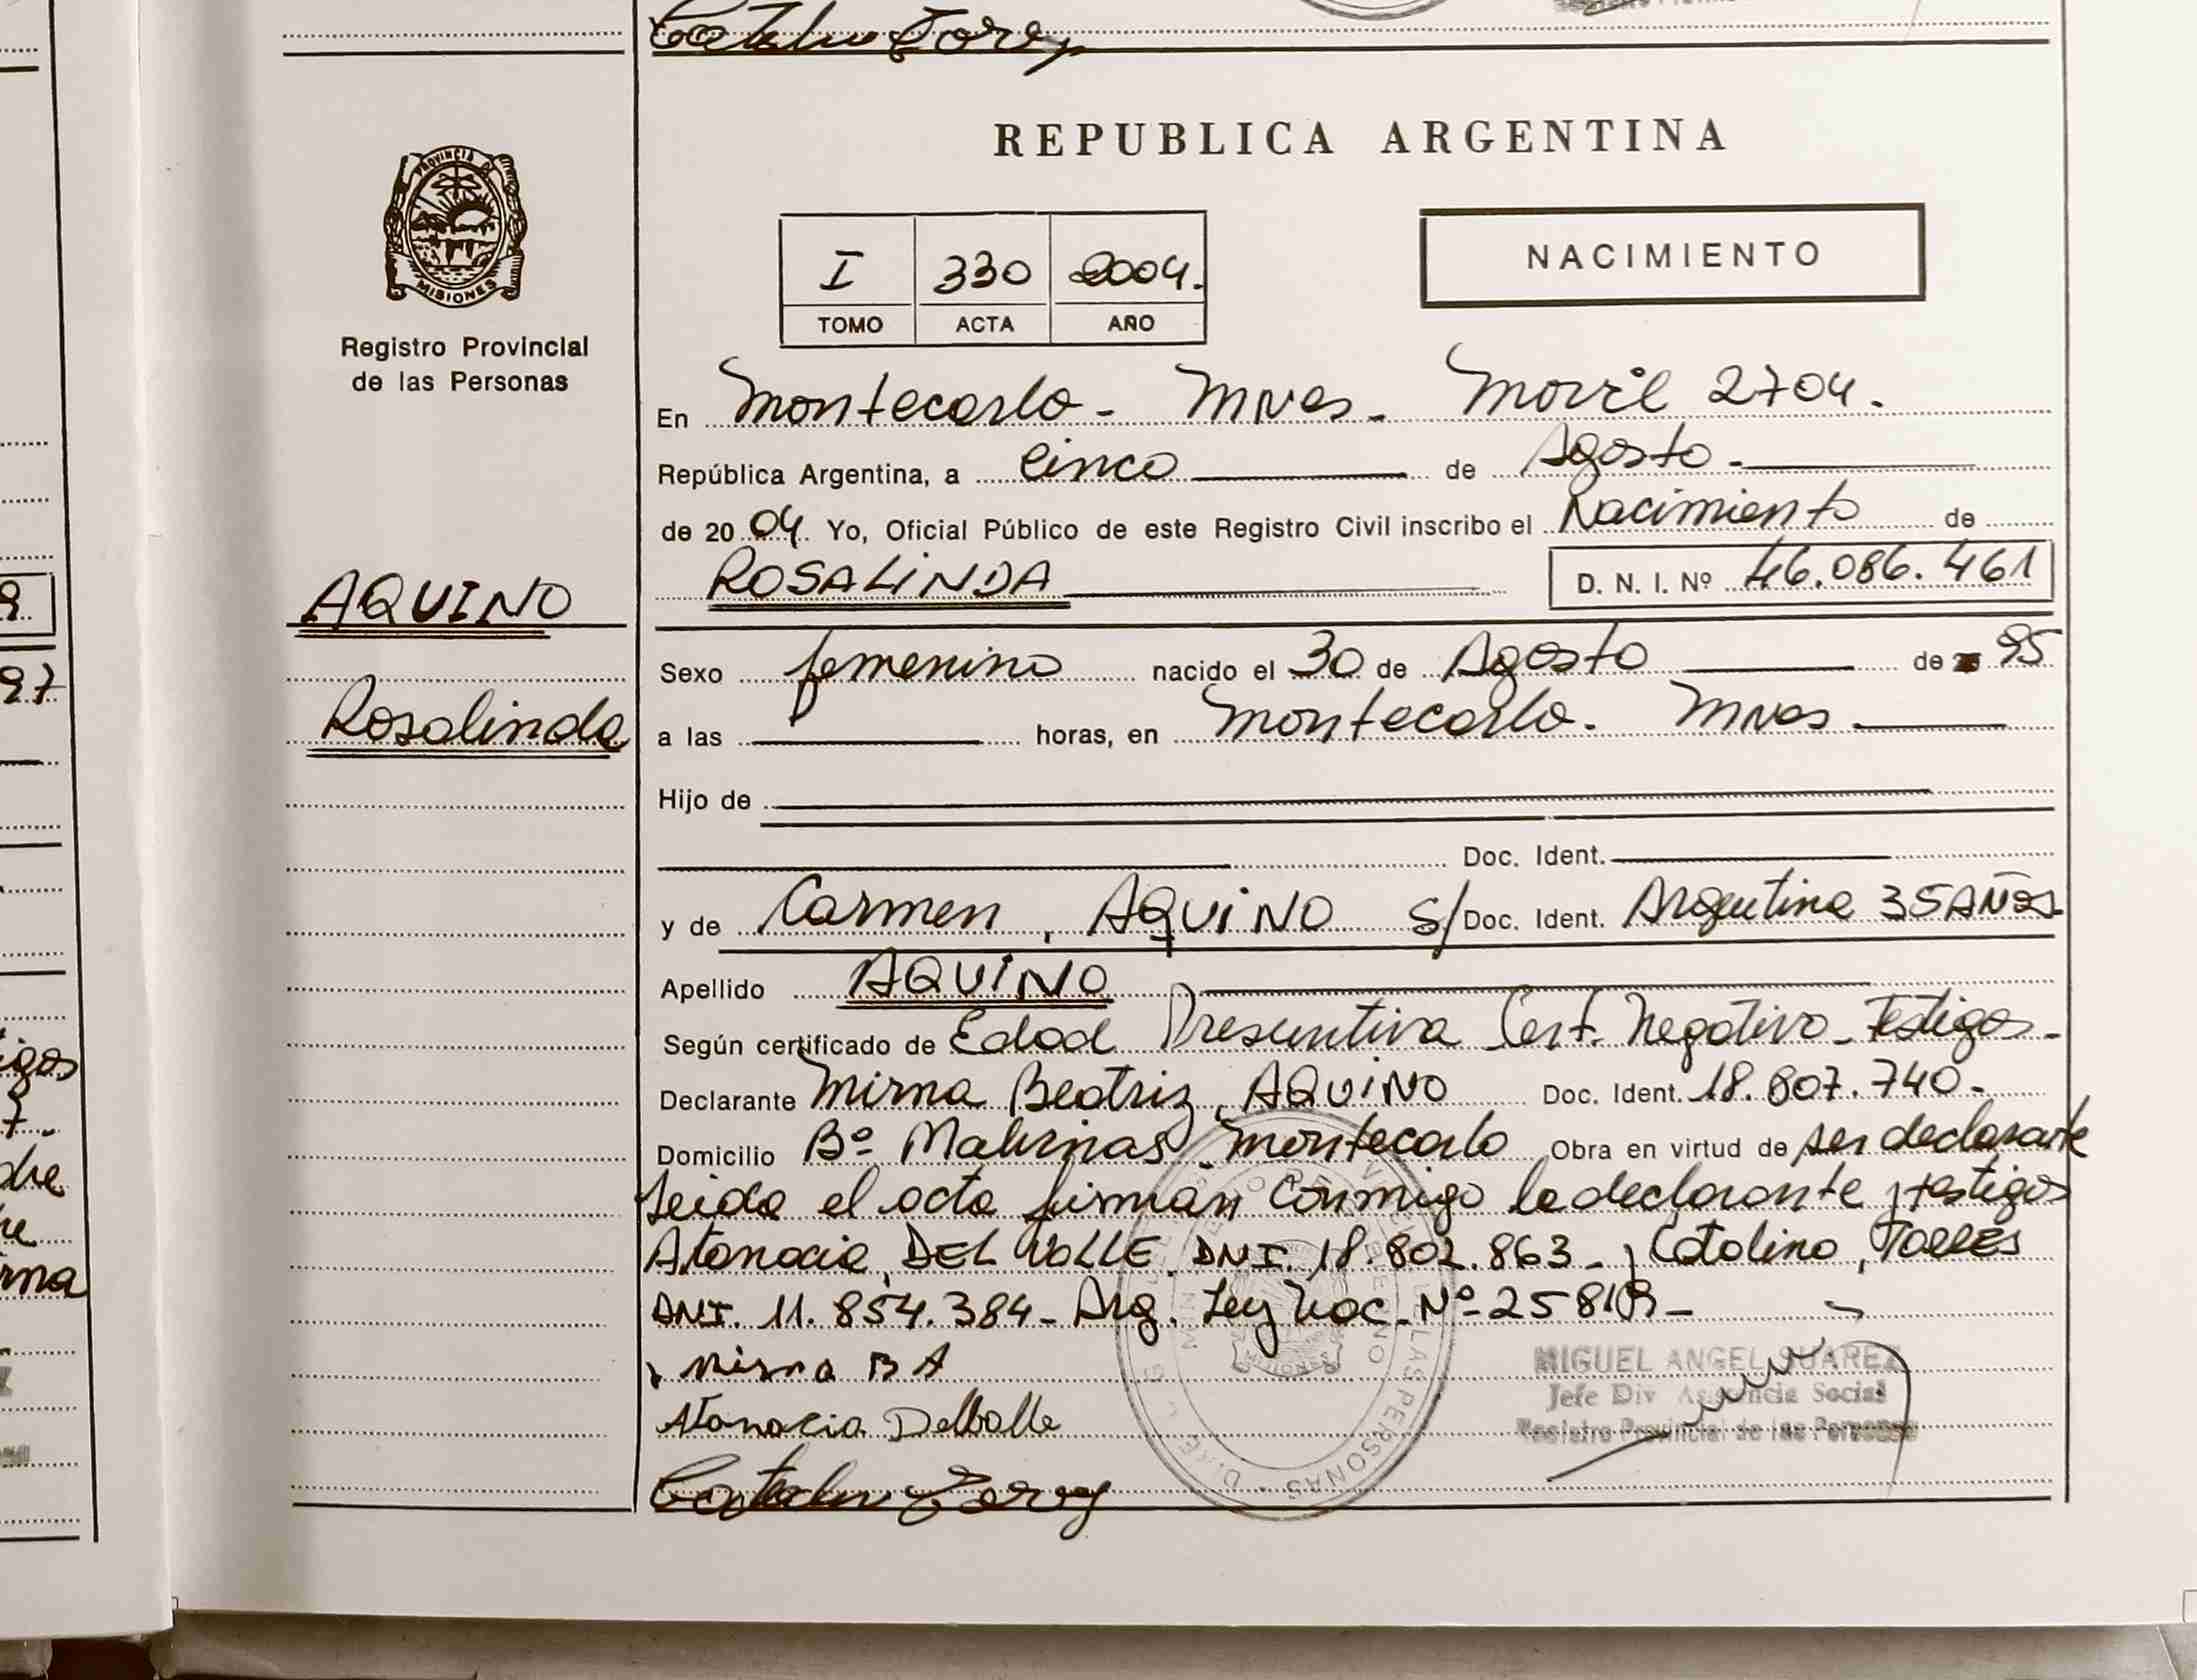 REPUBLICA ARGENTINA
PROVINCIA DE
MISIONES
Registro Provincial
de las Personas
I 330 2004.
TOMO ACTA AÑO
NACIMIENTO
En Montecarlo - Mnes. Movil 2704.
República Argentina, a Cinco de Agosto.
de 2004 Yo, Oficial Público de este Registro Civil inscribo el Nacimiento de
AQUINO
ROSALINDA D. N. I. Nº 46.086.461
Sexo femenino nacido el 30 de Agosto de 95
Rosalinda
a las horas, en Montecarlo. Mnes.
Hijo de
Doc. Ident.
y de Carmen, AQUINO S/ Doc. Ident. Argentina 35 AÑOS
Apellido AQUINO
Según certificado de Edad Presuntiva Cert. Negativo - Testigos -
Declarante Mirna Beatriz, AQUINO Doc. Ident. 18.807.740-
Domicilio Bº Malvinas Montecarlo Obra en virtud de ser declarante
Leida el acta firman conmigo la declarante y testigos
Atanacia, DEL VALLE DNI. 18.802.863 - y Catalino, TORRES
DNI. 11.854.384 - Arg. Ley Nac. Nº 25819 -
Mirna B A
MIGUEL ANGEL SUAREZ
Jefe Div Asistencia Social
Registro Provincial de las Personas
Atanacia Delballe